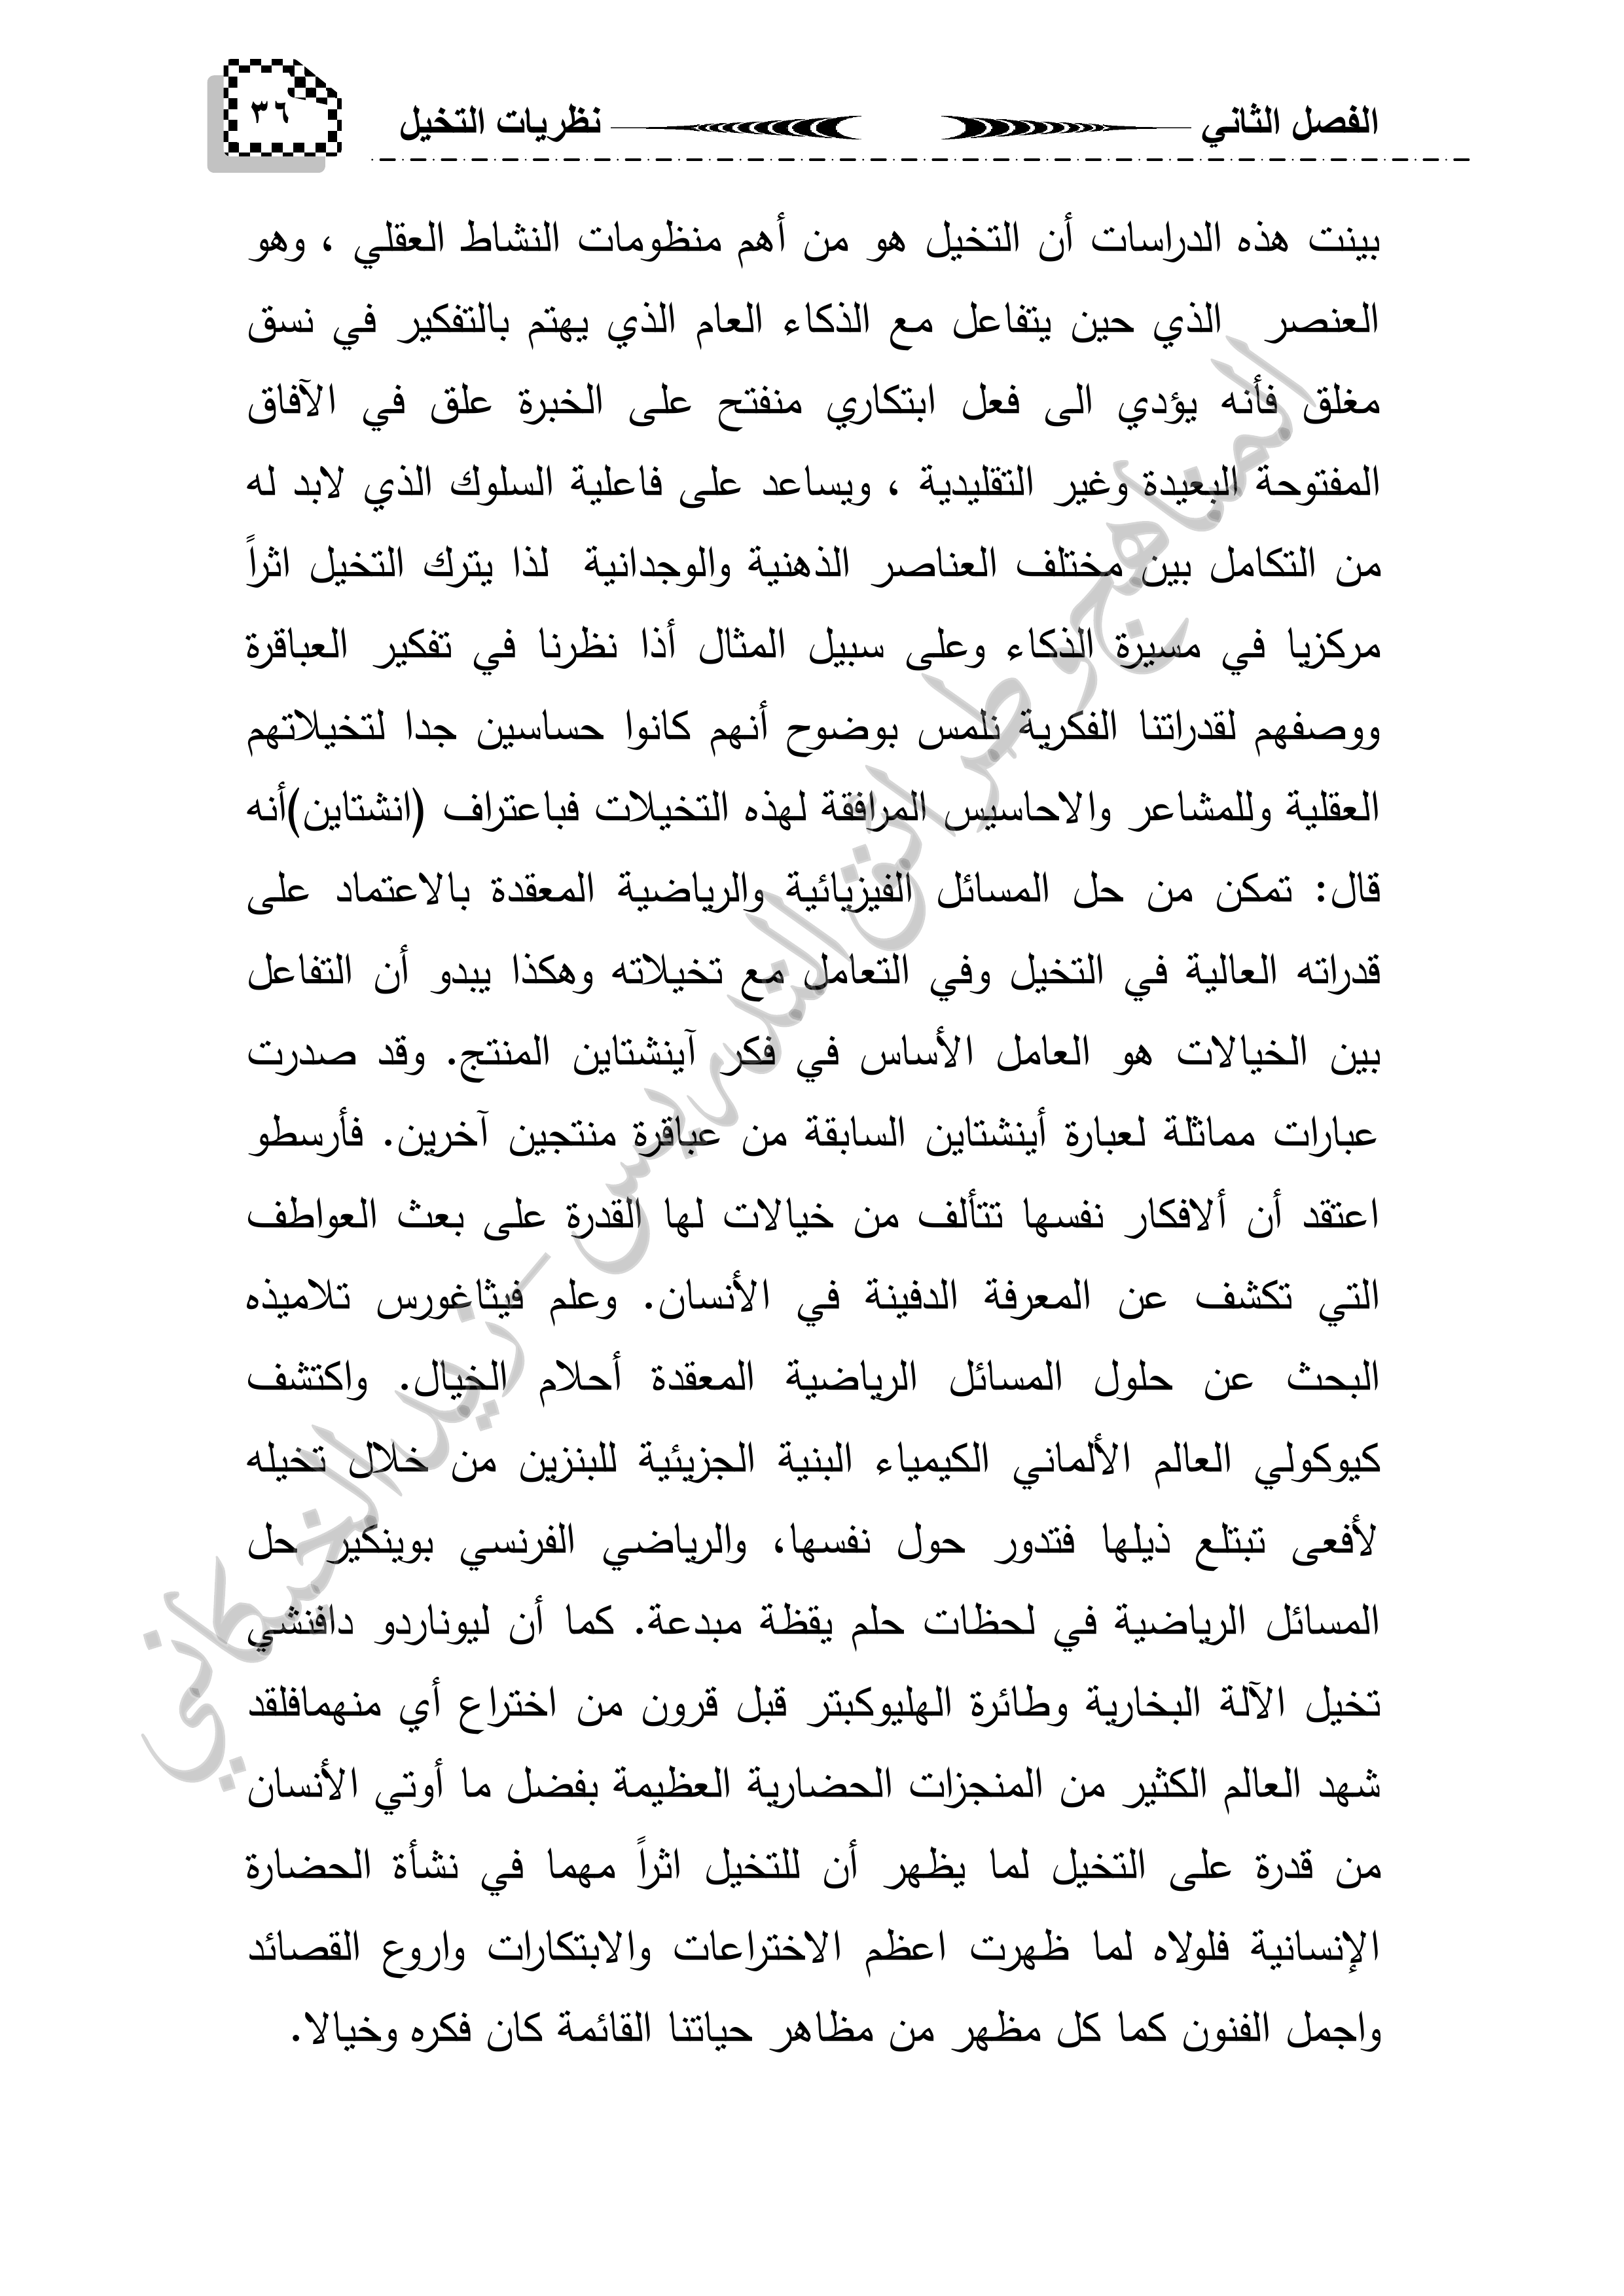 الفصل الثاني نظريات التخيل ٣٦
بينت هذه الدراسات أن التخيل هو من أهم منظومات النشاط العقلي ، وهو
العنصر الذي حين يتفاعل مع الذكاء العام الذي يهتم بالتفكير في نسق
مغلق فأنه يؤدي الى فعل ابتكاري منفتح على الخبرة علق في الآفاق
المفتوحة البعيدة وغير التقليدية ، ويساعد على فاعلية السلوك الذي لابد له
من التكامل بين مختلف العناصر الذهنية والوجدانية لذا يترك التخيل اثراً
مركزيا في مسيرة الذكاء وعلى سبيل المثال أذا نظرنا في تفكير العباقرة
ووصفهم لقدراتنا الفكرية نلمس بوضوح أنهم كانوا حساسين جدا لتخيلاتهم
العقلية وللمشاعر والاحاسيس المرافقة لهذه التخيلات فباعتراف (انشتاين)أنه
قال: تمكن من حل المسائل الفيزيائية والرياضية المعقدة بالاعتماد على
قدراته العالية في التخيل وفي التعامل مع تخيلاته وهكذا يبدو أن التفاعل
بين الخيالات هو العامل الأساس في فكر آينشتاين المنتج. وقد صدرت
عبارات مماثلة لعبارة أينشتاين السابقة من عباقرة منتجين آخرين. فأرسطو
اعتقد أن ألافكار نفسها تتألف من خيالات لها القدرة على بعث العواطف
التي تكشف عن المعرفة الدفينة في الأنسان. وعلم فيثاغورس تلاميذه
البحث عن حلول المسائل الرياضية المعقدة أحلام الخيال. واكتشف
كيوكولي العالم الألماني الكيمياء البنية الجزيئية للبنزين من خلال تخيله
لأفعى تبتلع ذيلها فتدور حول نفسها، والرياضي الفرنسي بوينكير حل
المسائل الرياضية في لحظات حلم يقظة مبدعة. كما أن ليوناردو دافنشي
تخيل الآلة البخارية وطائرة الهليوكبتر قبل قرون من اختراع أي منهمافلقد
شهد العالم الكثير من المنجزات الحضارية العظيمة بفضل ما أوتي الأنسان
من قدرة على التخيل لما يظهر أن للتخيل اثراً مهما في نشأة الحضارة
الإنسانية فلولاه لما ظهرت اعظم الاختراعات والابتكارات واروع القصائد
واجمل الفنون كما كل مظهر من مظاهر حياتنا القائمة كان فكره وخيالا.
المناهج وطرائق التدريس - زيد الخيكاني